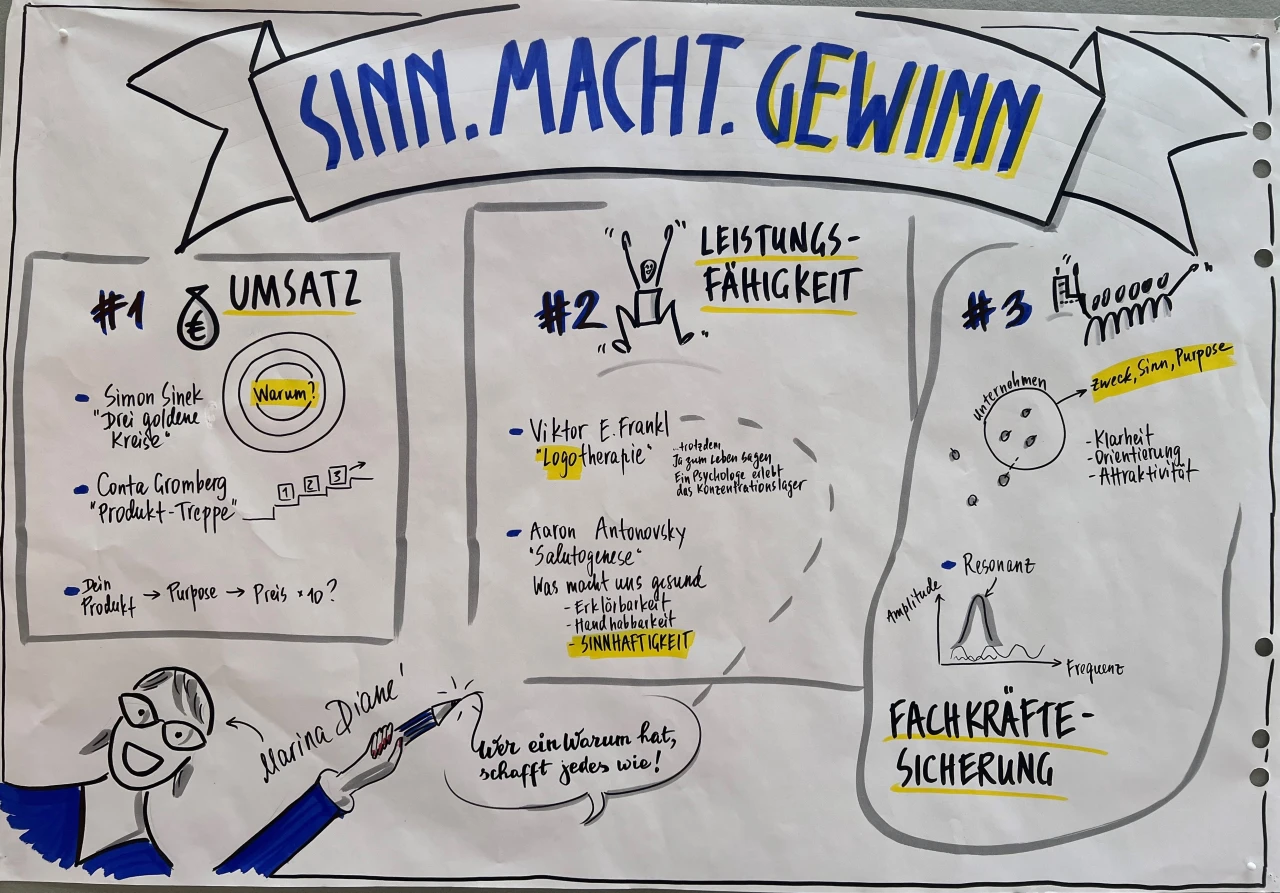 SINN. MACHT. GEWINN
#1
€
UMSATZ
Simon Sinek
"Drei goldene
Kreise"
Warum?
Conta Gromberg
"Produkt-Treppe"
1 2 3
Dein
Produkt → Purpose → Preis x10?
#2
LEISTUNGS-
FÄHIGKEIT
Viktor E. Frankl
"Logotherapie"
...trotzdem
Ja zum Leben sagen
Ein Psychologe erlebt
das Konzentrationslager
Aaron Antonovsky
"Salutogenese"
Was macht uns gesund
- Erklörbarkeit
- Handhabbarkeit
- SINNHAFTIGKEIT
#3
Unternehmen
Zweck, Sinn, Purpose
- Klarheit
- Orientierung
- Attraktivität
Resonanz
Amplitude
Frequenz
FACHKRÄFTE-
SICHERUNG
Marina Diané
Wer ein Warum hat,
schafft jedes wie!